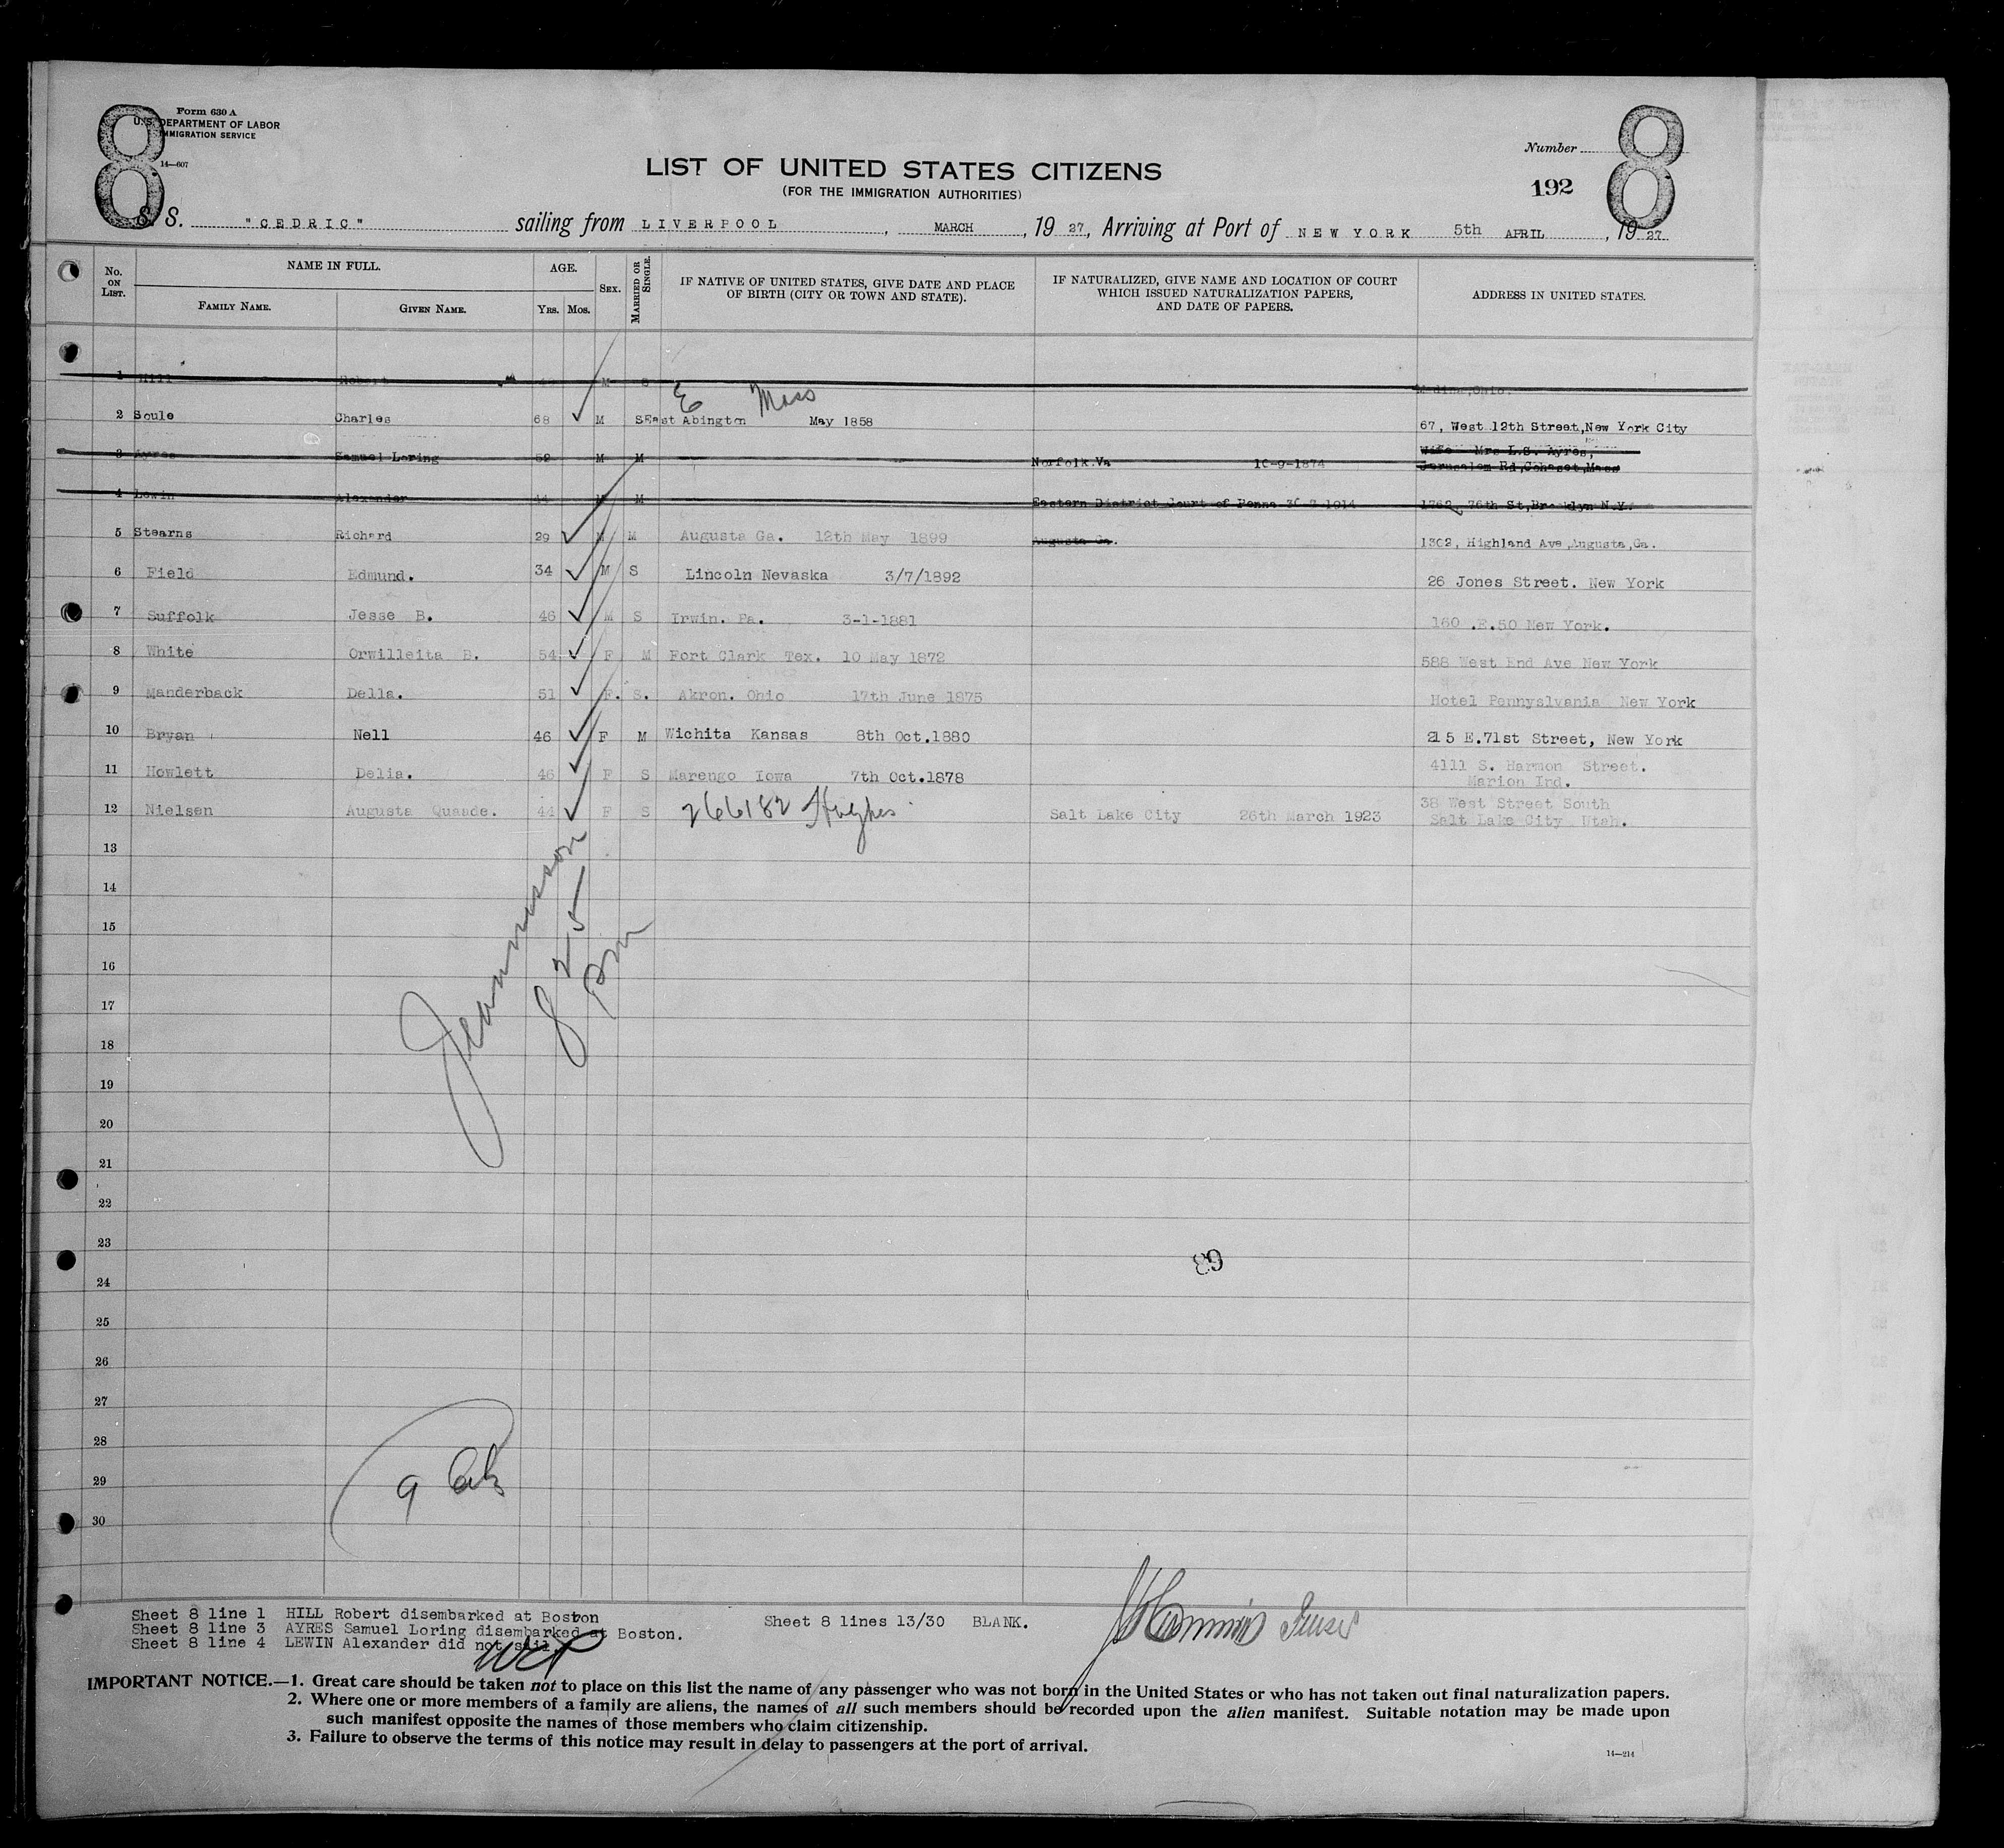 8
Form 630 A
U.S. DEPARTMENT OF LABOR
IMMIGRATION SERVICE
14—607
8
Number
192
LIST OF UNITED STATES CITIZENS
(FOR THE IMMIGRATION AUTHORITIES)
S. S. "CEDRIC" sailing from LIVERPOOL, MARCH, 19 27, Arriving at Port of NEW YORK 5th APRIL, 19 27
No. ON LIST. NAME IN FULL. AGE. SEX. MARRIED OR SINGLE. IF NATIVE OF UNITED STATES, GIVE DATE AND PLACE OF BIRTH (CITY OR TOWN AND STATE). IF NATURALIZED, GIVE NAME AND LOCATION OF COURT WHICH ISSUED NATURALIZATION PAPERS, AND DATE OF PAPERS. ADDRESS IN UNITED STATES.
FAMILY NAME. GIVEN NAME. YRS. MOS.
1 Hill Robert M S Medina, Ohio.
E Mass
2 Soule Charles 68 M S East Abington May 1858 67, West 12th Street, New York City
3 Ayres Samuel Loring 52 M M Norfolk.Va 10-9-1874 Wife Mrs L.S. Ayres,
Jerusalem Rd, Cohaset, Mass
4 Lewin Alexander 44 M M Eastern District Court of Penna 1914 1762, 76th St, Brooklyn N.Y.
5 Stearns Richard 29 M M Augusta Ga. 12th May 1899 Augusta Ga. 1302, Highland Ave, Augusta, Ga.
6 Field Edmund. 34 M S Lincoln Nevaska 3/7/1892 26 Jones Street. New York
7 Suffolk Jesse B. 46 M S Irwin. Pa. 3-1-1881 160 .E.50 New York.
8 White Orwilleita B. 54 F M Fort Clark Tex. 10 May 1872 588 West End Ave New York
9 Manderback Della. 51 F. S. Akron. Ohio 17th June 1875 Hotel Pennyslvania New York
10 Bryan Nell 46 F M Wichita Kansas 8th Oct.1880 215 E.71st Street, New York
11 Howlett Delia. 46 F S Marengo Iowa 7th Oct.1878 4111 S. Harmon Street.
Marion Ind.
12 Nielsen Augusta Quaade. 44 F S 266182 Hughes Salt Lake City 26th March 1923 38 West Street South
Salt Lake City Utah.
13
14
15
16
17
18
19
20
21
22
23
24
25
26
27
28
29
30
8 25
pm
89
9
Sheet 8 line 1 HILL Robert disembarked at Boston
Sheet 8 line 3 AYRES Samuel Loring disembarked at Boston.
Sheet 8 line 4 LEWIN Alexander did not sail.
Sheet 8 lines 13/30 BLANK.
IMPORTANT NOTICE.—1. Great care should be taken not to place on this list the name of any passenger who was not born in the United States or who has not taken out final naturalization papers.
2. Where one or more members of a family are aliens, the names of all such members should be recorded upon the alien manifest. Suitable notation may be made upon
such manifest opposite the names of those members who claim citizenship.
3. Failure to observe the terms of this notice may result in delay to passengers at the port of arrival.
14—214